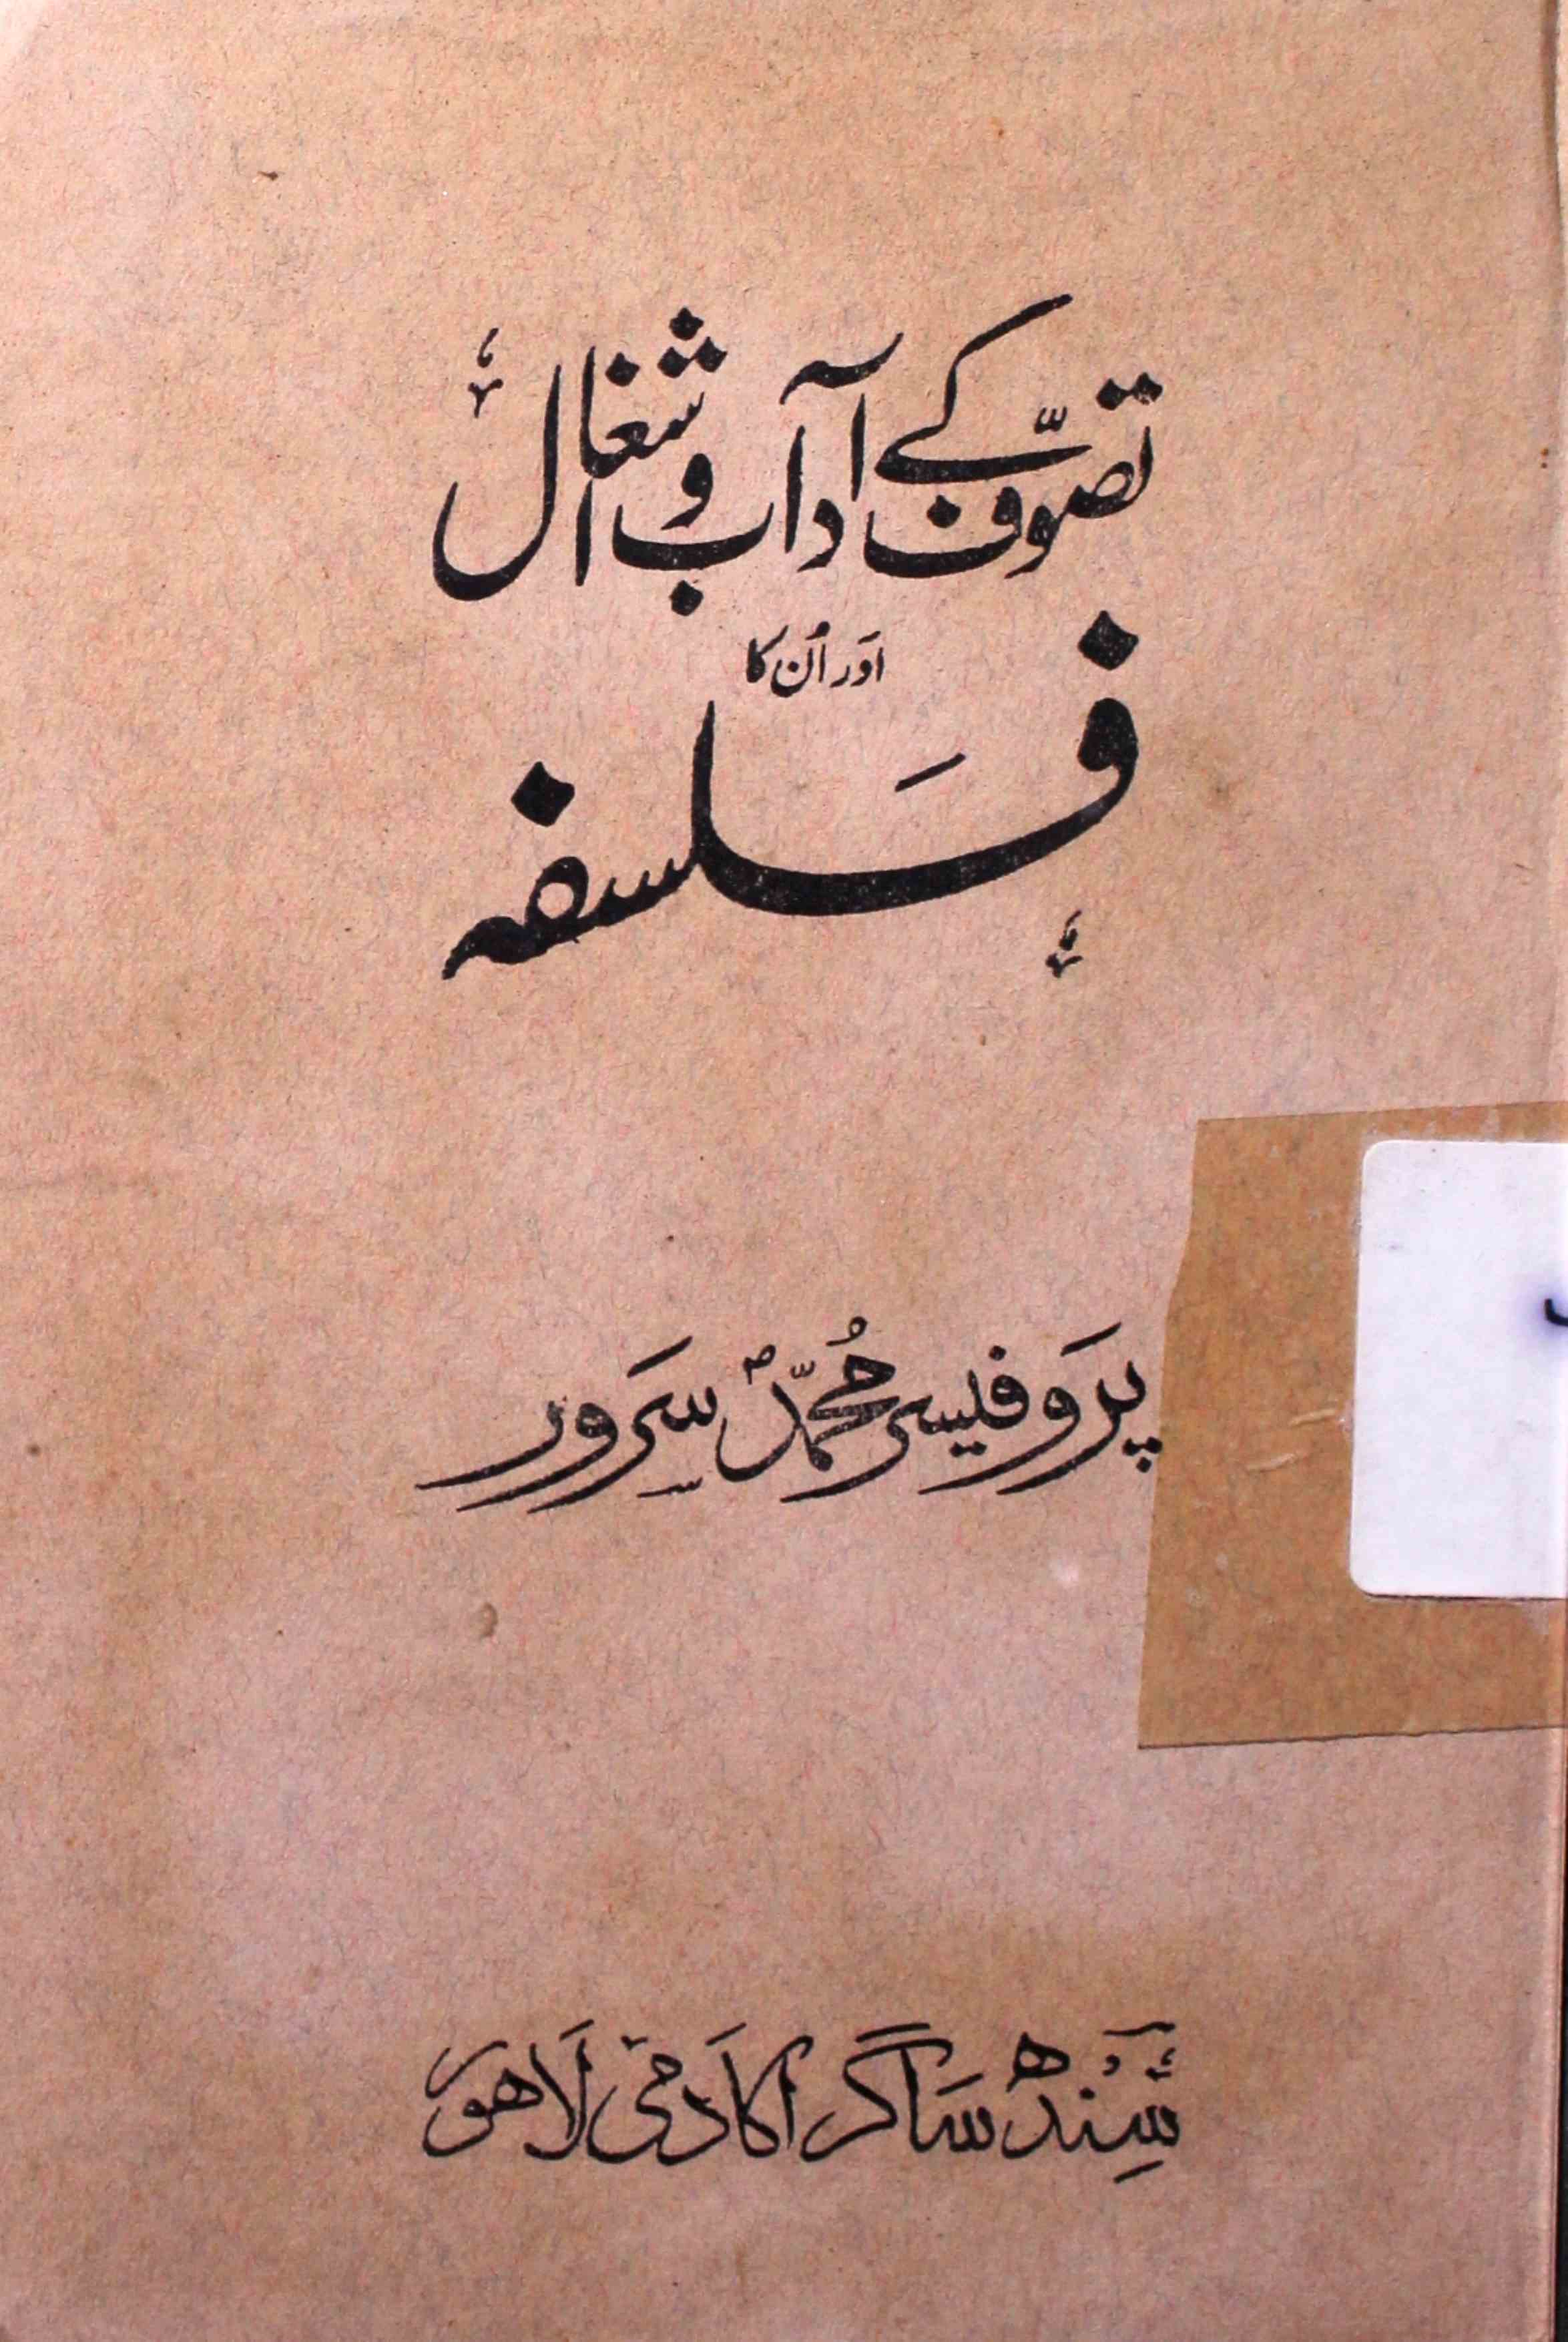 تصوّف کے آداب و اشغال
اور اُن کا
فلسفہ
پروفیسر محمّد سرور
سِندھ ساگر اکادمی لاہور